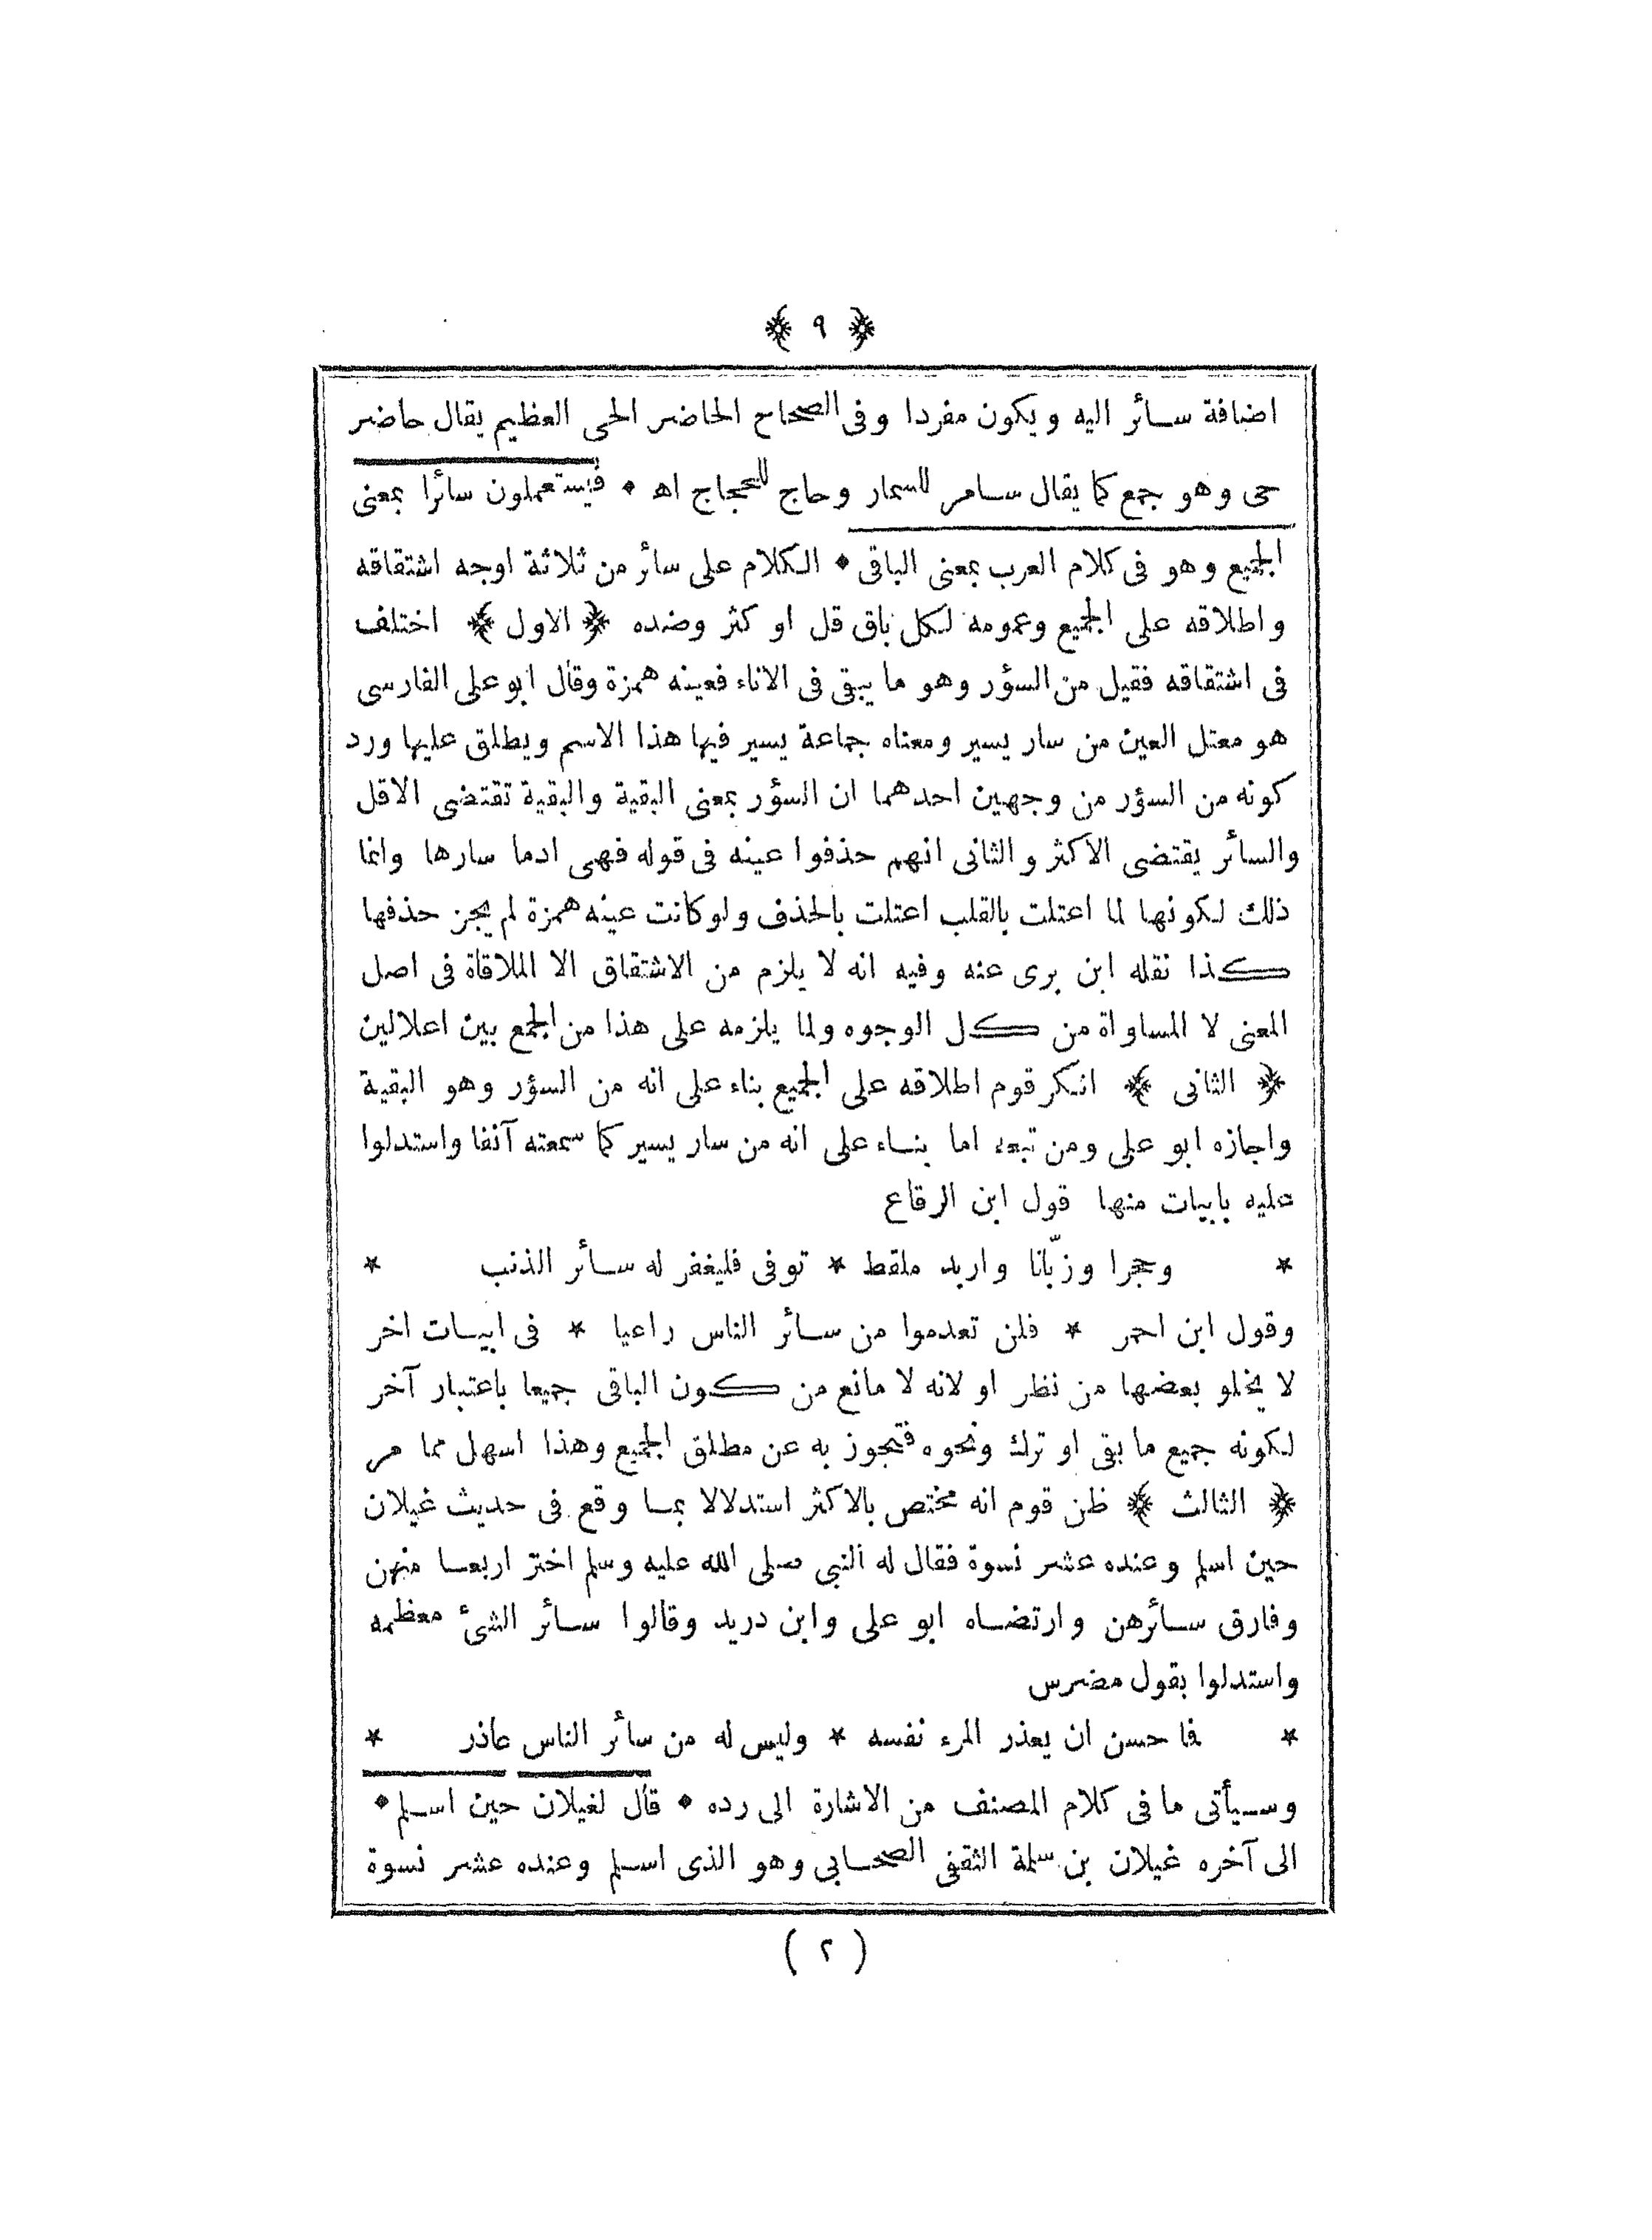 ﴿ ٩ ﴾
اضافة سائر اليه ويكون مفردا وفى الصحاح الحاضر الحى العظيم يقال حاضر
حى وهو جمع كما يقال سامر للسمار وحاج للحجاج اه * فيستعملون سائرا بمعنى
الجميع وهو فى كلام العرب بمعنى الباقى * الكلام على سائر من ثلاثة اوجه اشتقاقه
واطلاقه على الجميع وعمومه لكل باق قل او كثر وضده ﴿ الاول ﴾ اختلف
فى اشتقاقه فقيل من السؤر وهو ما يبقى فى الاناء فعينه همزة وقال ابو على الفارسى
هو معتل العين من سار يسير ومعناه جماعة يسير فيها هذا الاسم ويطلق عليها ورد
كونه من السؤر من وجهين احدهما ان السؤر بمعنى البقية والبقية تقتضى الاقل
والسائر يقتضى الاكثر والثانى انهم حذفوا عينه فى قوله فهى ادما سارها وانما
ذلك لكونها لما اعتلت بالقلب اعتلت بالحذف ولو كانت عينه همزة لم يجز حذفها
كذا نقله ابن برى عنه وفيه انه لا يلزم من الاشتقاق الا الملاقاة فى اصل
المعنى لا المساواة من كل الوجوه ولما يلزمه على هذا من الجمع بين اعلالين
﴿ الثانى ﴾ انكر قوم اطلاقه على الجميع بناء على انه من السؤر وهو البقية
واجازه ابو على ومن تبعه اما بناء على انه من سار يسير كما سمعته آنفا واستدلوا
عليه بابيات منها قول ابن الرقاع
* وحجرا وزبّانا واربد ملقط * توفى فليغفر له سائر الذنب *
وقول ابن احمر * فلن تعدموا من سائر الناس راعيا * فى ابيات اخر
لا يخلو بعضها من نظر او لانه لا مانع من كون الباقى جميعا باعتبار آخر
لكونه جميع ما بقى او ترك ونحوه فتجوز به عن مطلق الجميع وهذا اسهل مما مر
﴿ الثالث ﴾ ظن قوم انه مختص بالاكثر استدلالا بما وقع فى حديث غيلان
حين اسلم وعنده عشر نسوة فقال له النبى صلى الله عليه وسلم اختر اربعا منهن
وفارق سائرهن وارتضاه ابو على وابن دريد وقالوا سائر الشئ معظمه
واستدلوا بقول مضرس
* فما حسن ان يعذر المرء نفسه * وليس له من سائر الناس عاذر *
وسيأتى ما فى كلام المصنف من الاشارة الى رده * قال لغيلان حين اسلم *
الى آخره غيلان بن سلمة الثقفى الصحابى وهو الذى اسلم وعنده عشر نسوة
( ٢ )